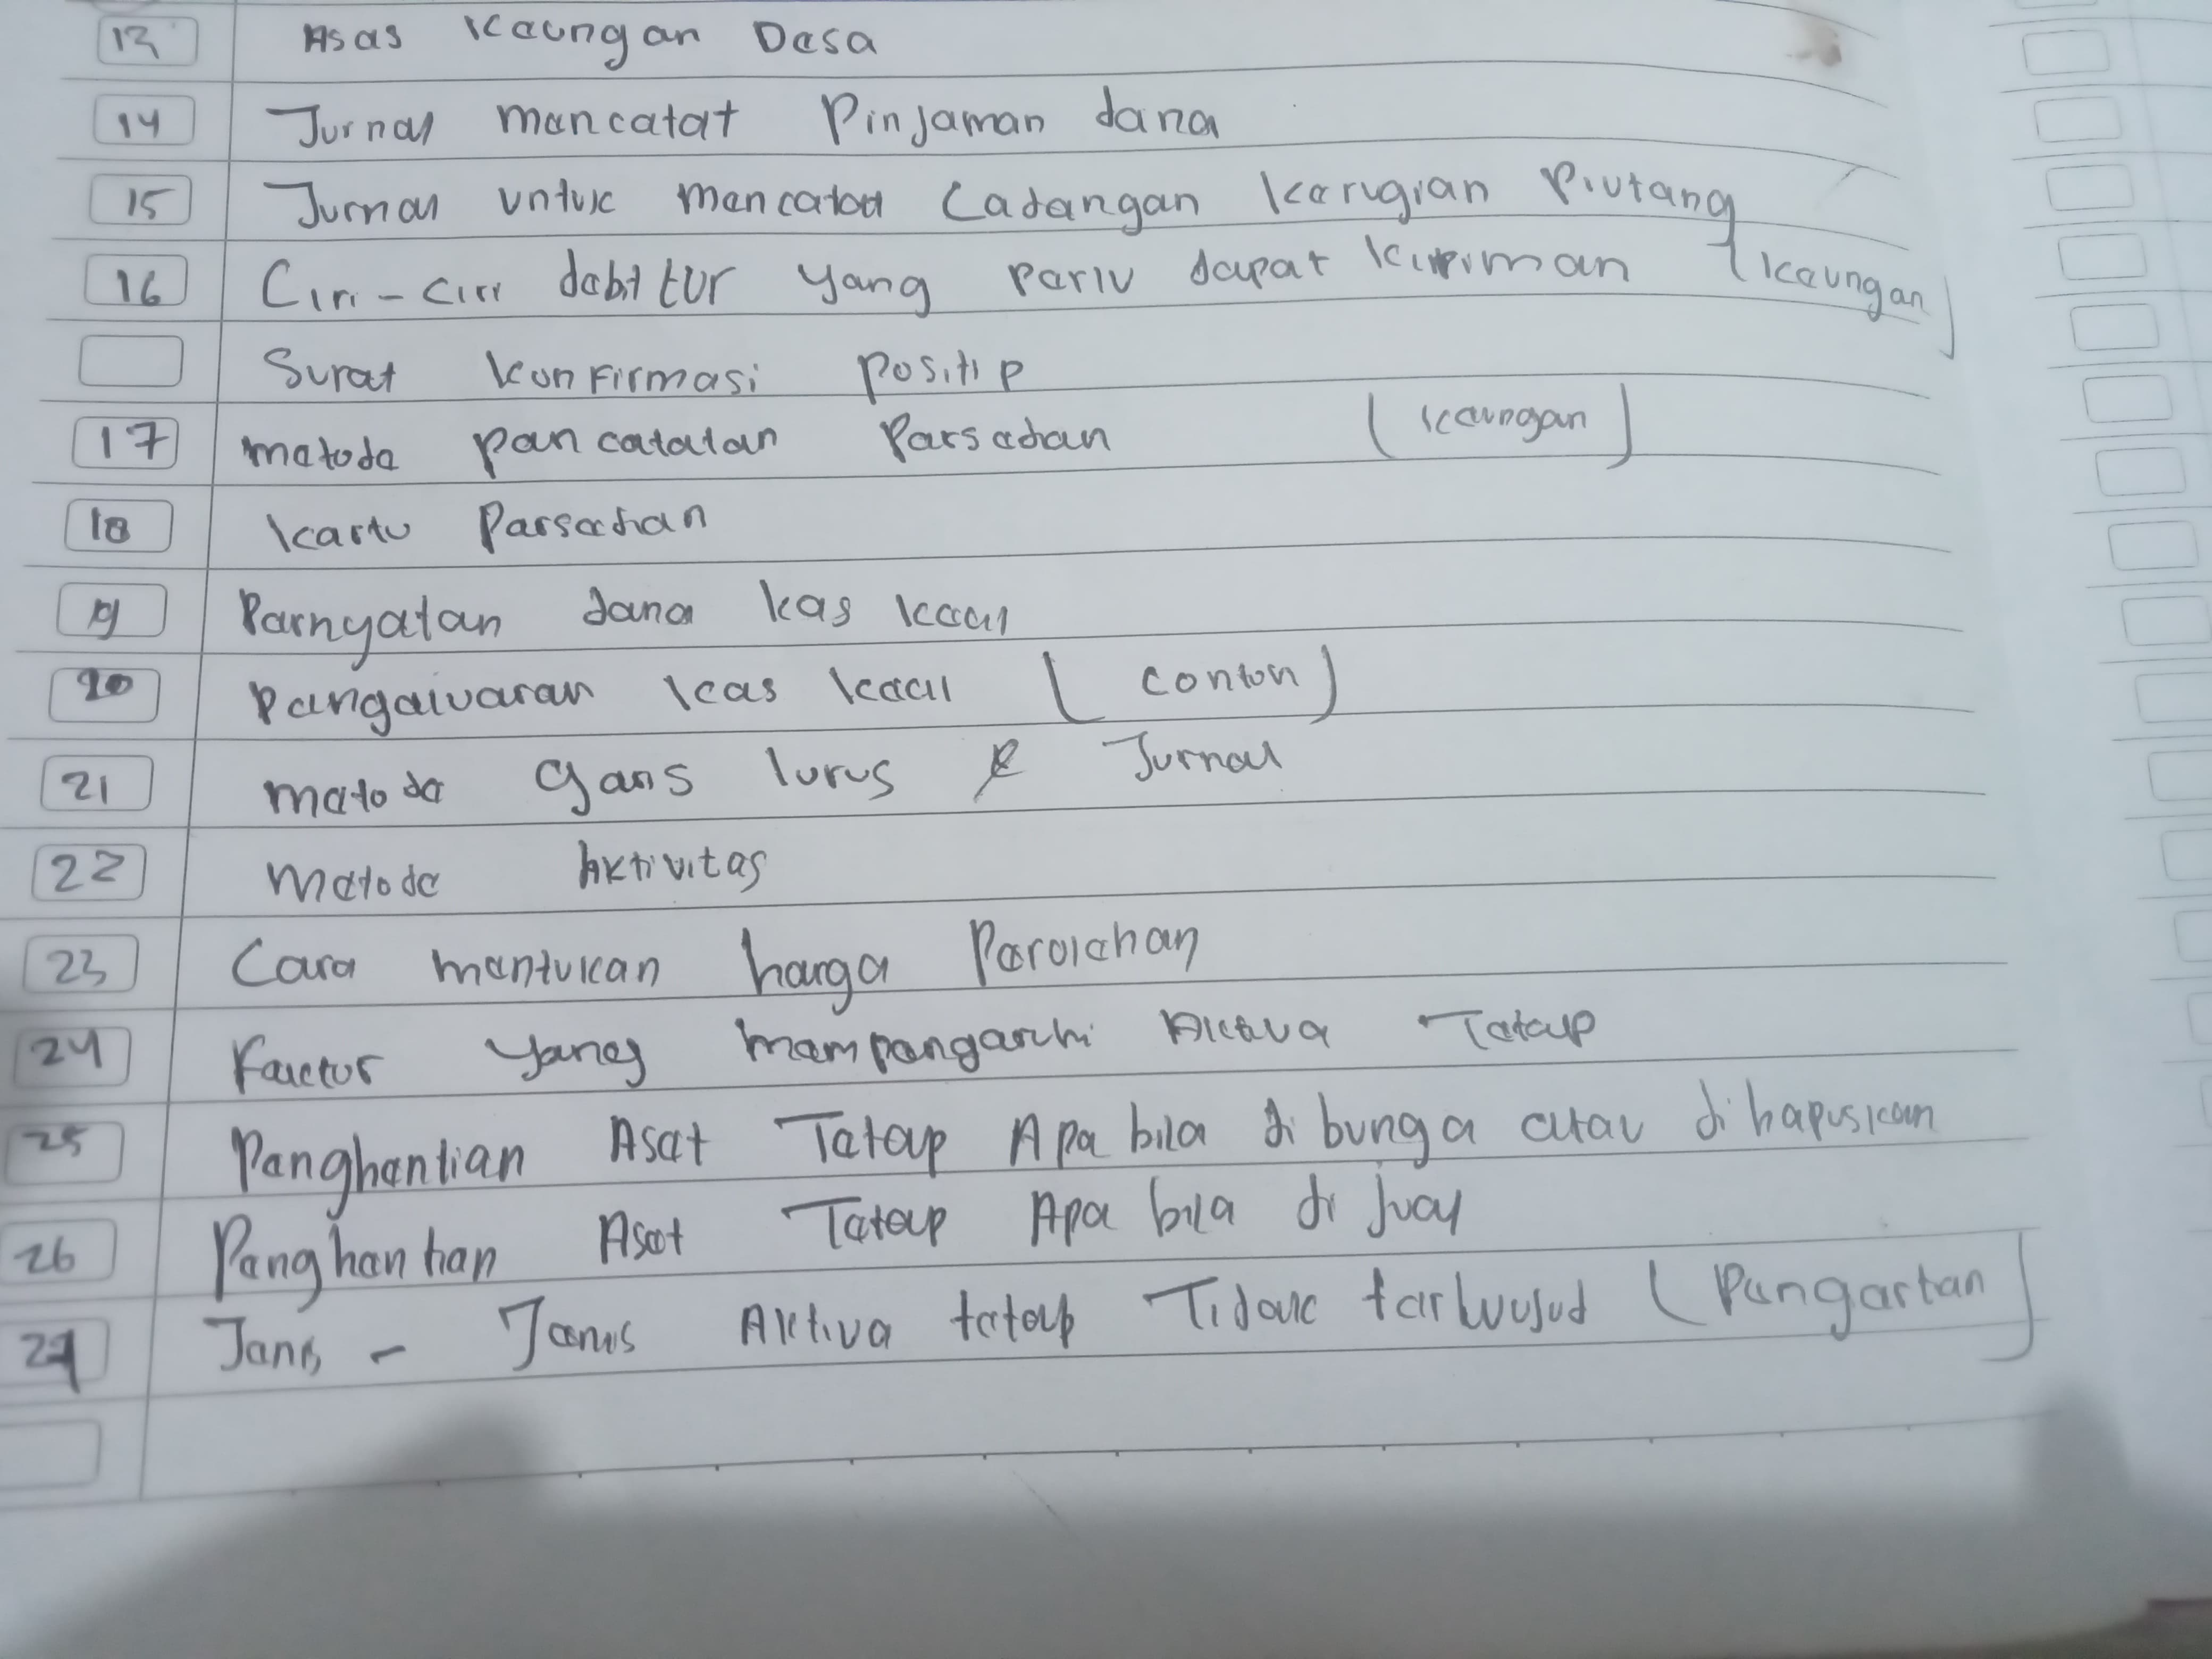 13 Asas keungan Desa
14 Jurnal mencatat Pinjaman dana
15 Jurnal untuk mencatat Cadangan kerugian Piutang
16 Ciri-ciri debitur yang perlu dapat kiriman (keungan)
Surat konfirmasi positip
17 metode pencatatan Persedian (keungan)
18 kartu Persedian
19 Pernyatan dana kas kecil
20 pengeluaran kas kecil (contoh)
21 metode garis lurus & Jurnal
22 metode Aktivitas
23 Cara mentukan harga Perolehan
24 Faktor yang mempengarhi Aktiva Tetap
25 Penghentian Aset Tetap Apa bila di bunga atau di hapuskan
26 Penghentian Aset Tetap Apa bila di jual
27 Jenis - Jenis Aktiva tetap Tidak terwujud (Pengertan)